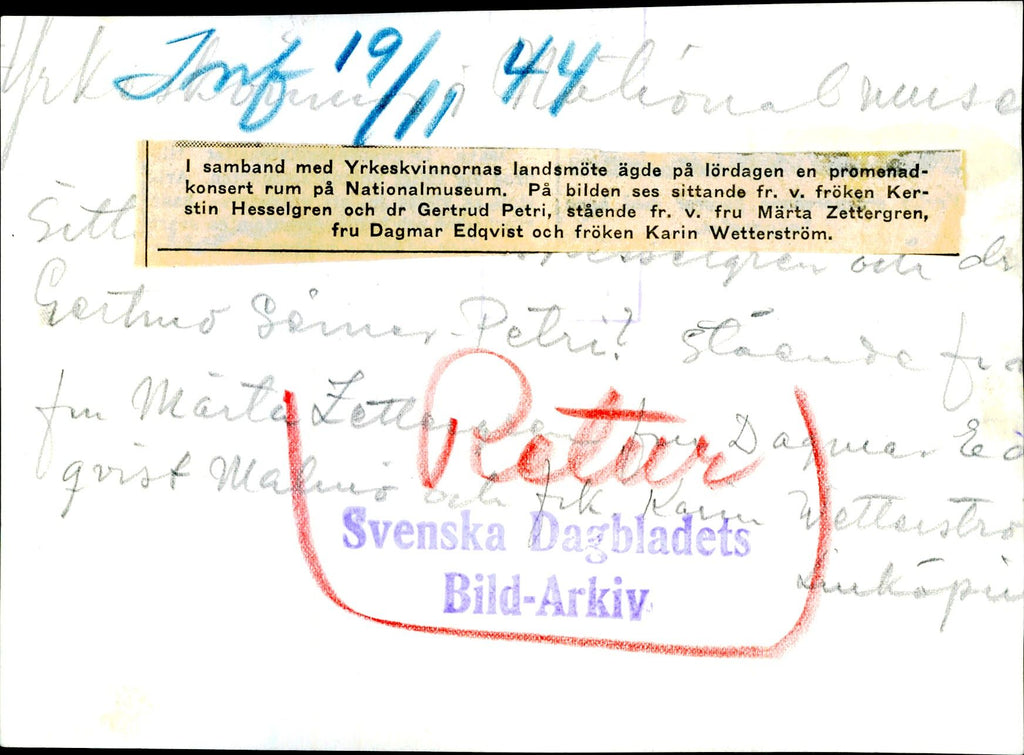 Inf 19/11 44
Yrk Nationalmuse
I samband med Yrkeskvinnornas landsmöte ägde på lördagen en promenad-
konsert rum på Nationalmuseum. På bilden ses sittande fr. v. fröken Ker-
stin Hesselgren och dr Gertrud Petri, stående fr. v. fru Märta Zettergren,
fru Dagmar Edqvist och fröken Karin Wetterström.
Sitt
och dr
Petri? Stående fr
fru Märta Zettergren fru Dagmar Ed
qvist Malmö och frk. Karin Wetterströ
Linköpin
Retur
Svenska Dagbladets
Bild-Arkiv